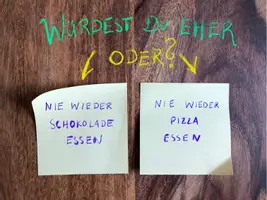 WÜRDEST DU EHER
ODER?
NIE WIEDER
SCHOKOLADE
ESSEN
NIE WIEDER
PIZZA
ESSEN